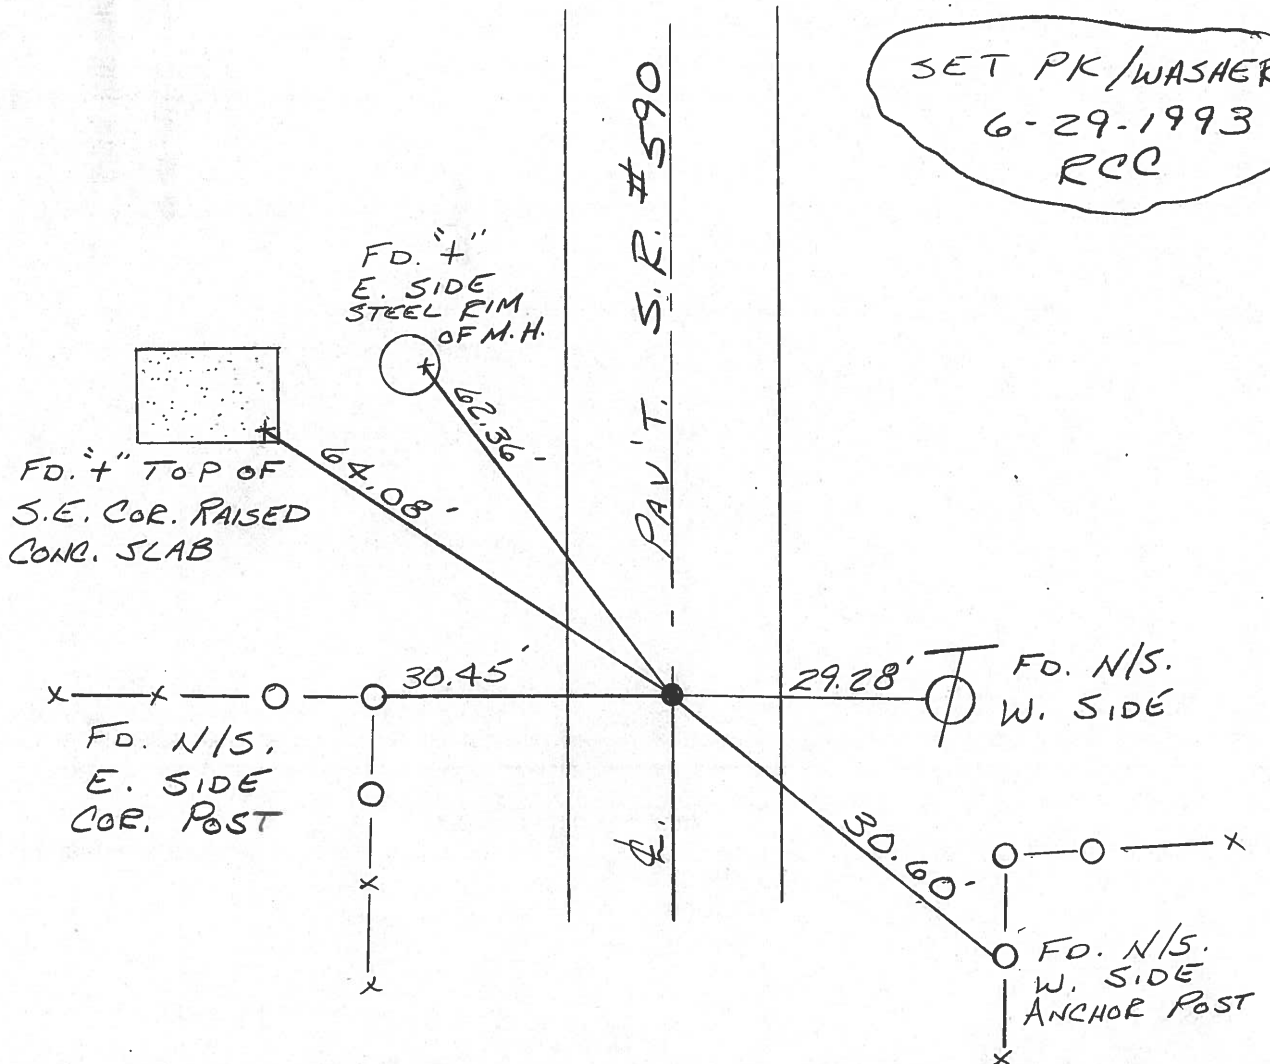 SET PK/WASHER
6-29-1993
RCC
FD. "+"
E. SIDE
STEEL RIM
OF M.H.
62.36'
64.08'
FD. "+" TOP OF
S.E. COR. RAISED
CONC. SLAB
℄ PAV'T. S.R. #590
30.45'
29.28'
FD. N/S.
W. SIDE
FD. N/S.
E. SIDE
COR. POST
30.60'
FD. N/S.
W. SIDE
ANCHOR POST